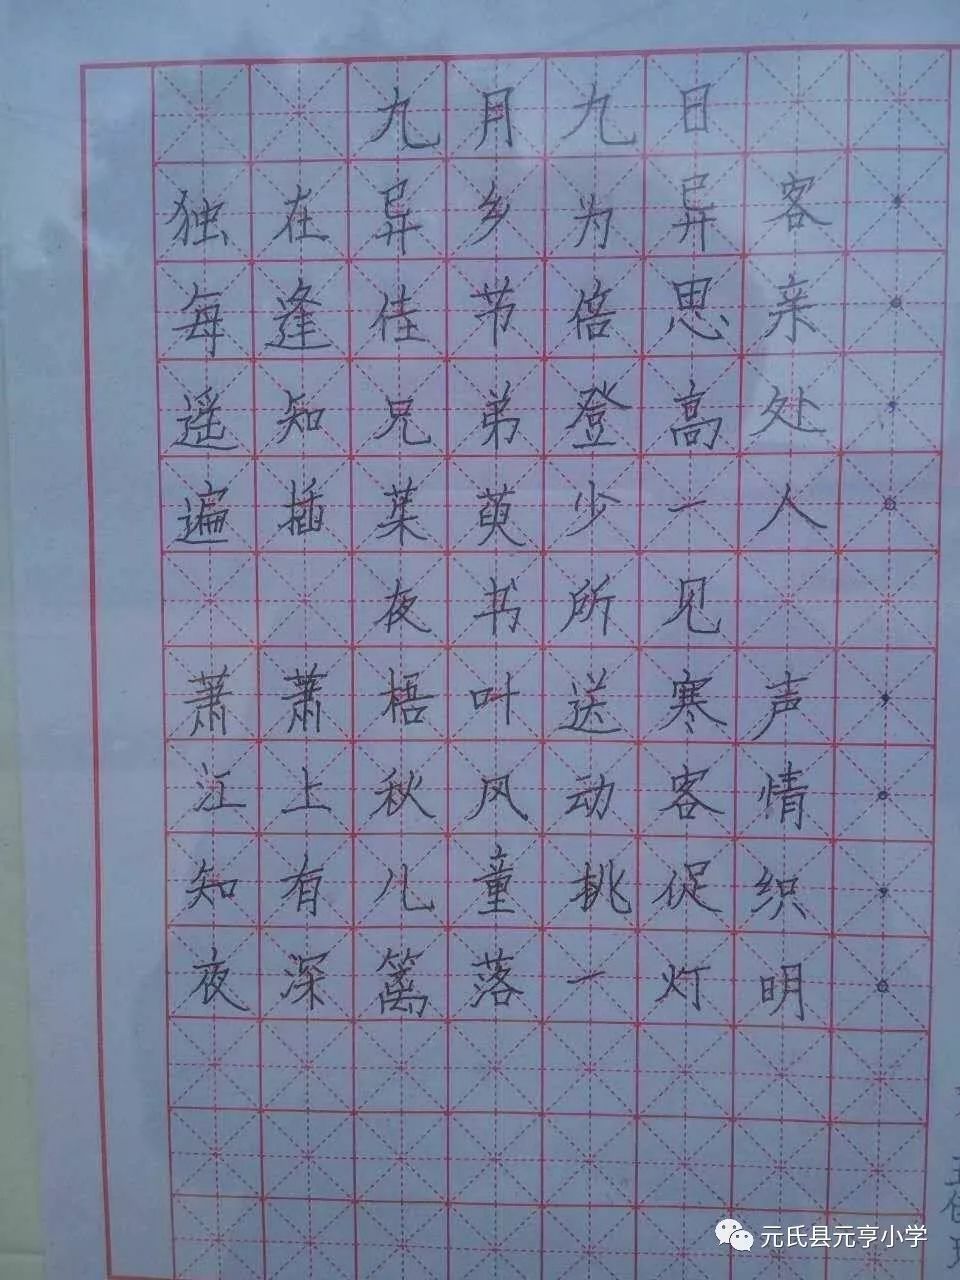 九月九日
独在异乡为异客，
每逢佳节倍思亲。
遥知兄弟登高处，
遍插茱萸少一人。
夜书所见
萧萧梧叶送寒声，
江上秋风动客情。
知有儿童挑促织，
夜深篱落一灯明。
元氏县元亨小学